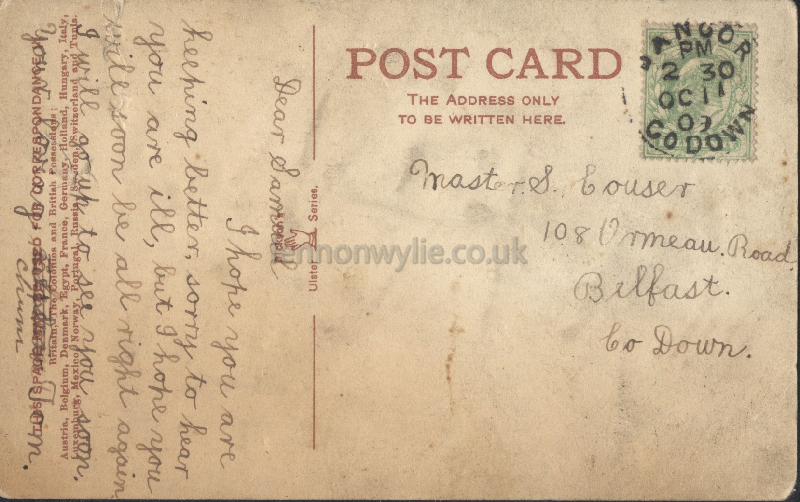 POST CARD
THE ADDRESS ONLY
TO BE WRITTEN HERE.
BANGOR
PM
2 30
OC 11
09
CO DOWN
Master. S. Couser
108 Ormeau. Road
Belfast.
Co Down.
Dear Samuel
I hope you are
keeping better, sorry to hear
you are ill, but I hope you
will soon be all right again
I will go up to see you soon.
Your
Tom.
chum
THIS SPACE FOR CORRESPONDANCE
Britain, The Colonies and British Possessions:
Austria, Belgium, Denmark, Egypt, France, Germany, Holland, Hungary, Italy,
Luxemburg, Mexico, Norway, Portugal, Russia, Sweden, Switzerland and Tunis.
Series.
lennonwylie.co.uk